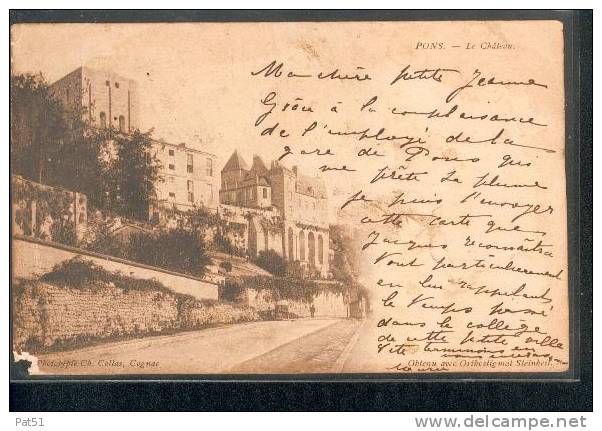 PONS. — Le Château.
Ma chère petite Jeanne
Grâce à la complaisance
de l'employé de la
gare de Pons qui
me prête sa plume
je puis t'envoyer
cette carte que
Jacques reconnaîtra
tout particulièrement
en lui rappelant
le temps passé
dans le collège
de cette petite ville
Phototypie Ch. Collas, Cognac
Obtenu avec Orthostigmat Steinheil.
Pat51
www.delcampe.net